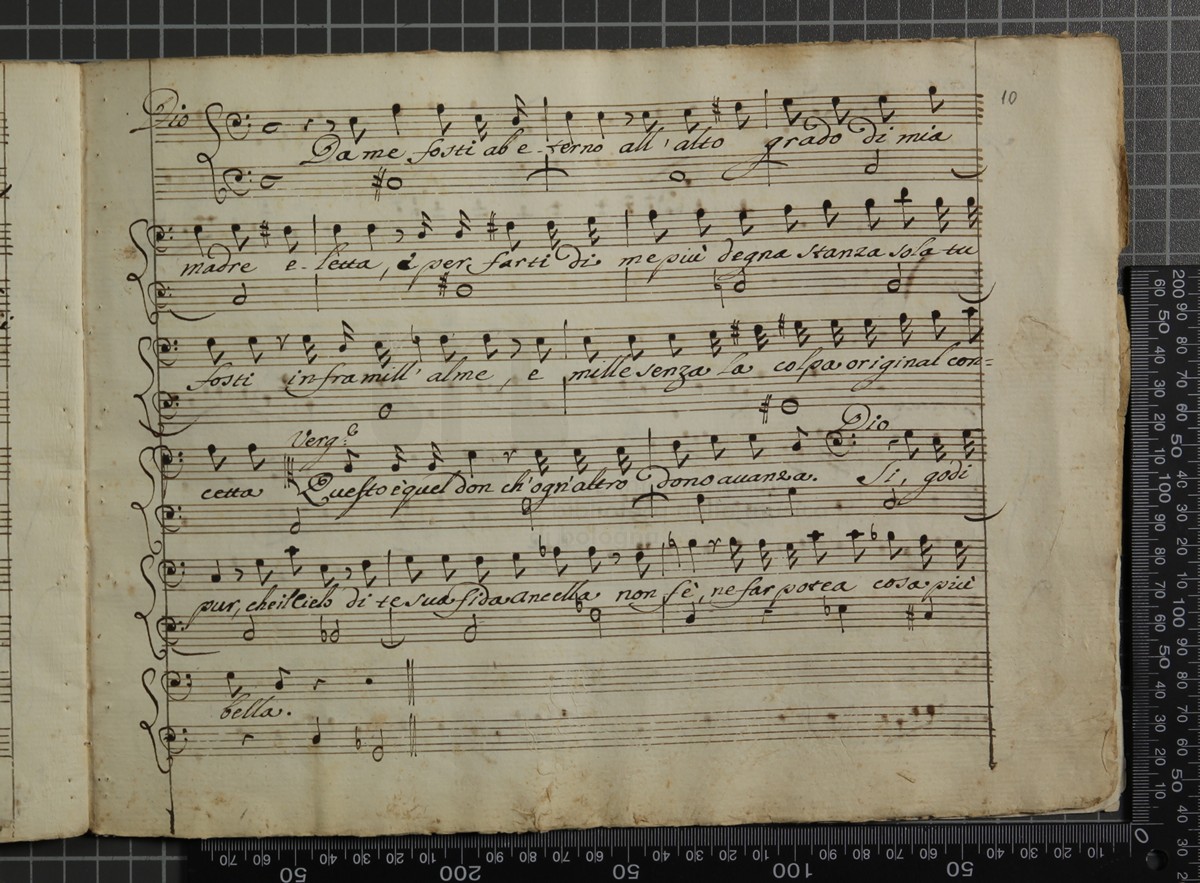 10
Dio
Da me fosti ab e-terno all' alto grado di mia
madre e-letta, e per farti di me più degna stanza sola tu
fosti infra mill' alme, e mille senza la colpa original con=
Verg:e
Dio
cetta Questo è quel don ch'ogn'altro dono auanza. Si, godi
pur, che il Cielo di te sua fida Ancella non fè, ne far potea cosa più
bella.